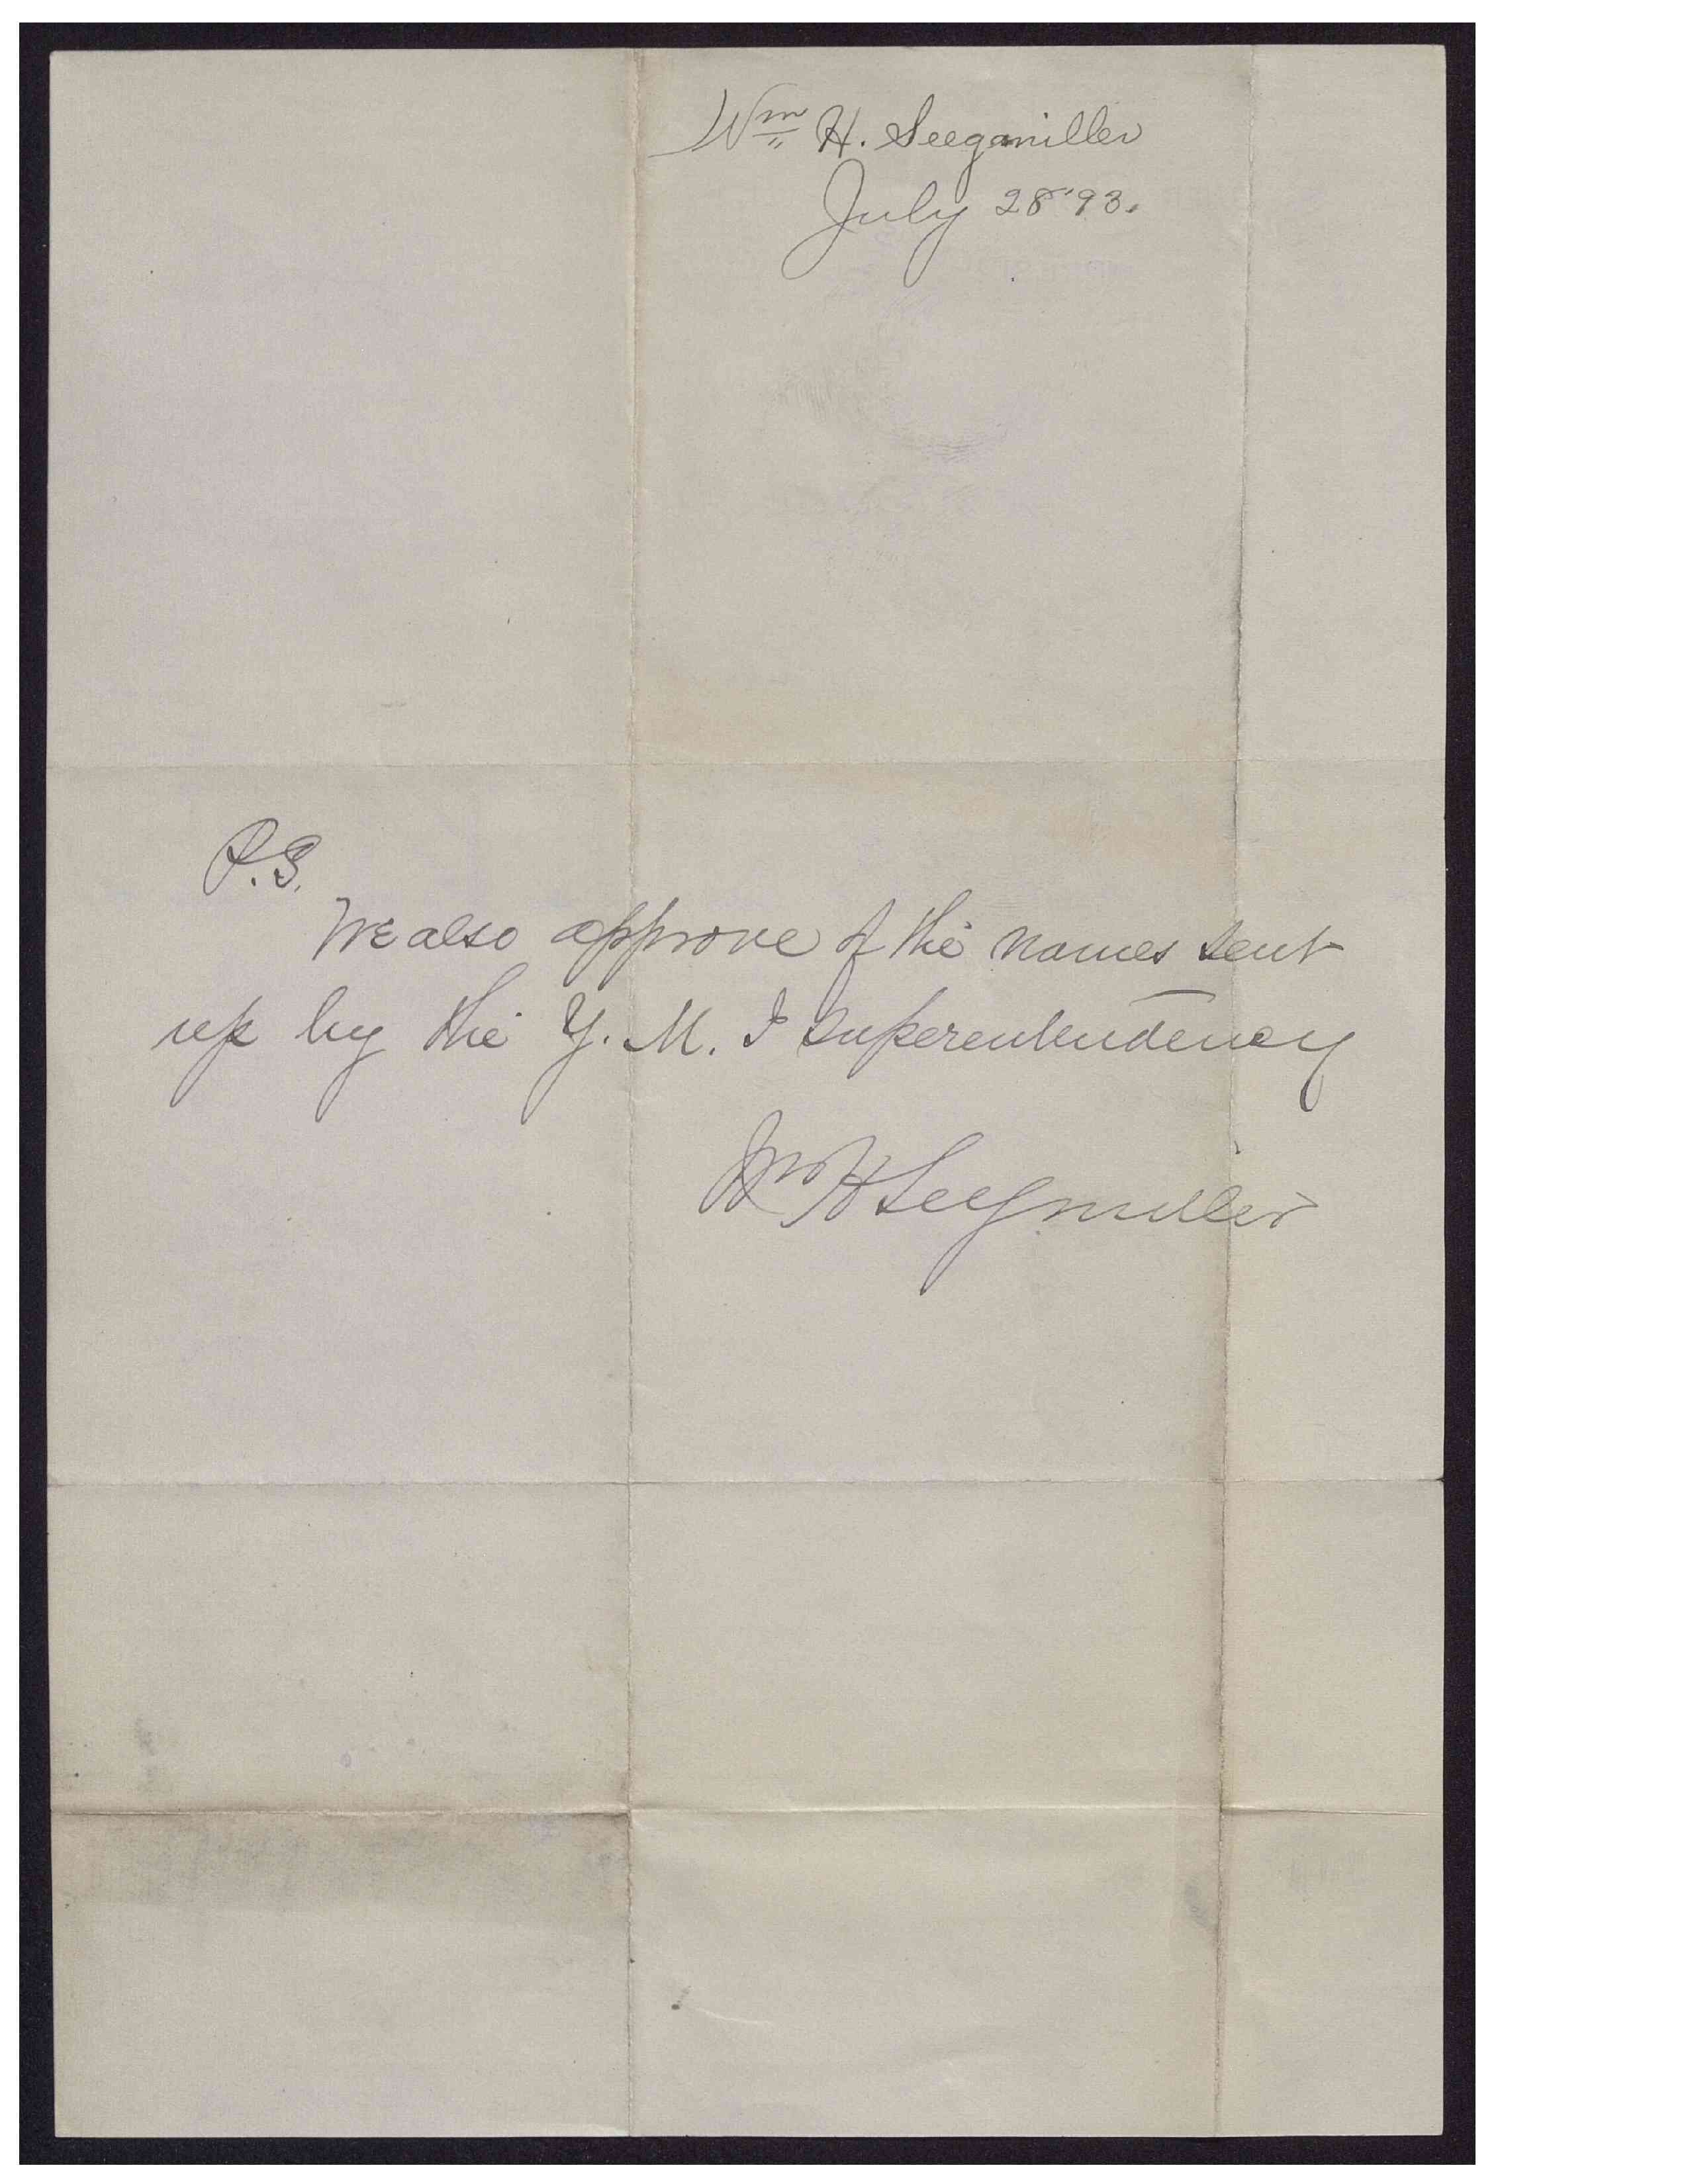 Wm H. Seegmiller
July 28 '93.
P.S.
We also approve of the names sent
up by the Y. M. I Superentendency
Wm H Seegmiller